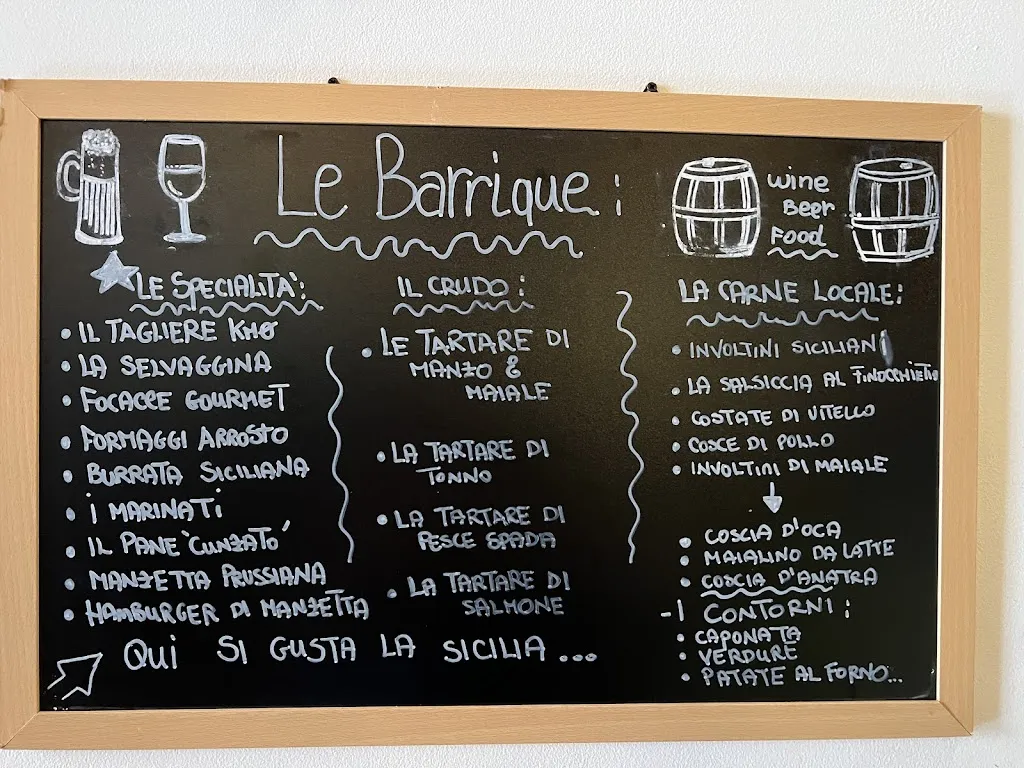 Le Barrique:
Wine
Beer
Food
Le Specialità:
• IL TAGLIERE Km0
• LA SELVAGGINA
• FOCACCE GOURMET
• FORMAGGI ARROSTO
• BURRATA SICILIANA
• i MARINATi
• IL PANE "CUNZATO"
• MANZETTA PRUSSIANA
• HAMBURGER DI MANZETTA
QUi SI GUSTA LA SICILIA...
IL CRUDO:
• LE TARTARE DI
MANZO &
MAIALE
• LA TARTARE DI
TONNO
• LA TARTARE DI
PESCE SPADA
• LA TARTARE DI
SALMONE
LA CARNE LOCALE:
• INVOLTINI SICILIANI
• LA SALSICCIA AL FINOCCHIETTO
• COSTATE DI VITELLO
• COSCE DI POLLO
• INVOLTINI DI MAIALE
• COSCIA D'OCA
• MAIALINO DA LATTE
• COSCIA D'ANATRA
- I CONTORNI:
• CAPONATA
• VERDURE
• PATATE AL FORNO...